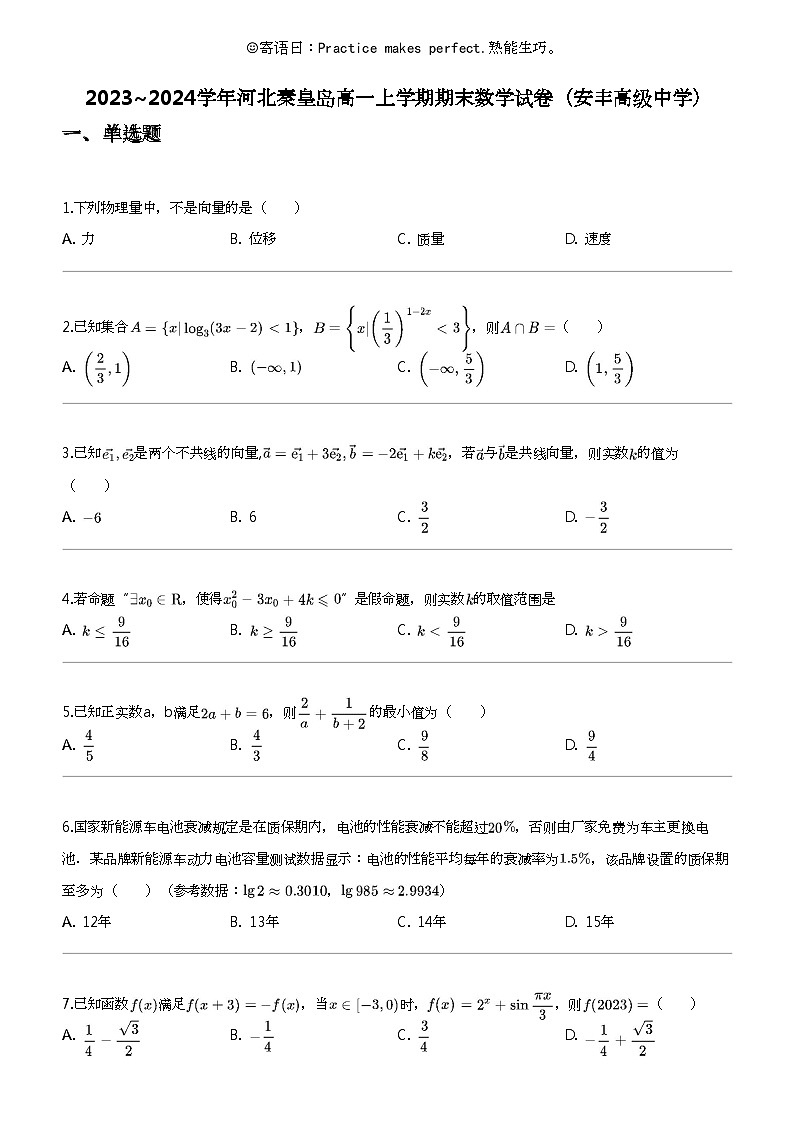 ☺寄语日：Practice makes perfect.熟能生巧。
2023~2024学年河北秦皇岛高一上学期期末数学试卷（安丰高级中学）
一、单选题
1.下列物理量中，不是向量的是（　　）
A. 力　B. 位移　C. 质量　D. 速度
2.已知集合$A=\{x|\log_3(3x-2)<1\}$，$B=\left\{x|\left(\frac{1}{3}\right)^{1-2x}<3\right\}$，则$A\cap B=$（　　）
A. $\left(\frac{2}{3},1\right)$　B. $(-\infty,1)$　C. $\left(-\infty,\frac{5}{3}\right)$　D. $\left(1,\frac{5}{3}\right)$
3.已知$\vec{e_1},\vec{e_2}$是两个不共线的向量,$\vec{a}=\vec{e_1}+3\vec{e_2},\vec{b}=-2\vec{e_1}+k\vec{e_2}$，若$\vec{a}$与$\vec{b}$是共线向量，则实数$k$的值为
（　　）
A. $-6$　B. 6　C. $\frac{3}{2}$　D. $-\frac{3}{2}$
4.若命题“$\exists x_0\in \mathrm{R}$，使得$x_0^2-3x_0+4k\leqslant 0$”是假命题，则实数$k$的取值范围是
A. $k\leq\frac{9}{16}$　B. $k\geq\frac{9}{16}$　C. $k<\frac{9}{16}$　D. $k>\frac{9}{16}$
5.已知正实数a，b满足$2a+b=6$，则$\frac{2}{a}+\frac{1}{b+2}$的最小值为（　　）
A. $\frac{4}{5}$　B. $\frac{4}{3}$　C. $\frac{9}{8}$　D. $\frac{9}{4}$
6.国家新能源车电池衰减规定是在质保期内，电池的性能衰减不能超过$20\%$，否则由厂家免费为车主更换电
池．某品牌新能源车动力电池容量测试数据显示：电池的性能平均每年的衰减率为$1.5\%$，该品牌设置的质保期
至多为（　　）（参考数据：$\lg2\approx0.3010$，$\lg985\approx2.9934$）
A. 12年　B. 13年　C. 14年　D. 15年
7.已知函数$f(x)$满足$f(x+3)=-f(x)$，当$x\in[-3,0)$时，$f(x)=2^x+\sin\frac{\pi x}{3}$，则$f(2023)=$（　　）
A. $\frac{1}{4}-\frac{\sqrt{3}}{2}$　B. $-\frac{1}{4}$　C. $\frac{3}{4}$　D. $-\frac{1}{4}+\frac{\sqrt{3}}{2}$